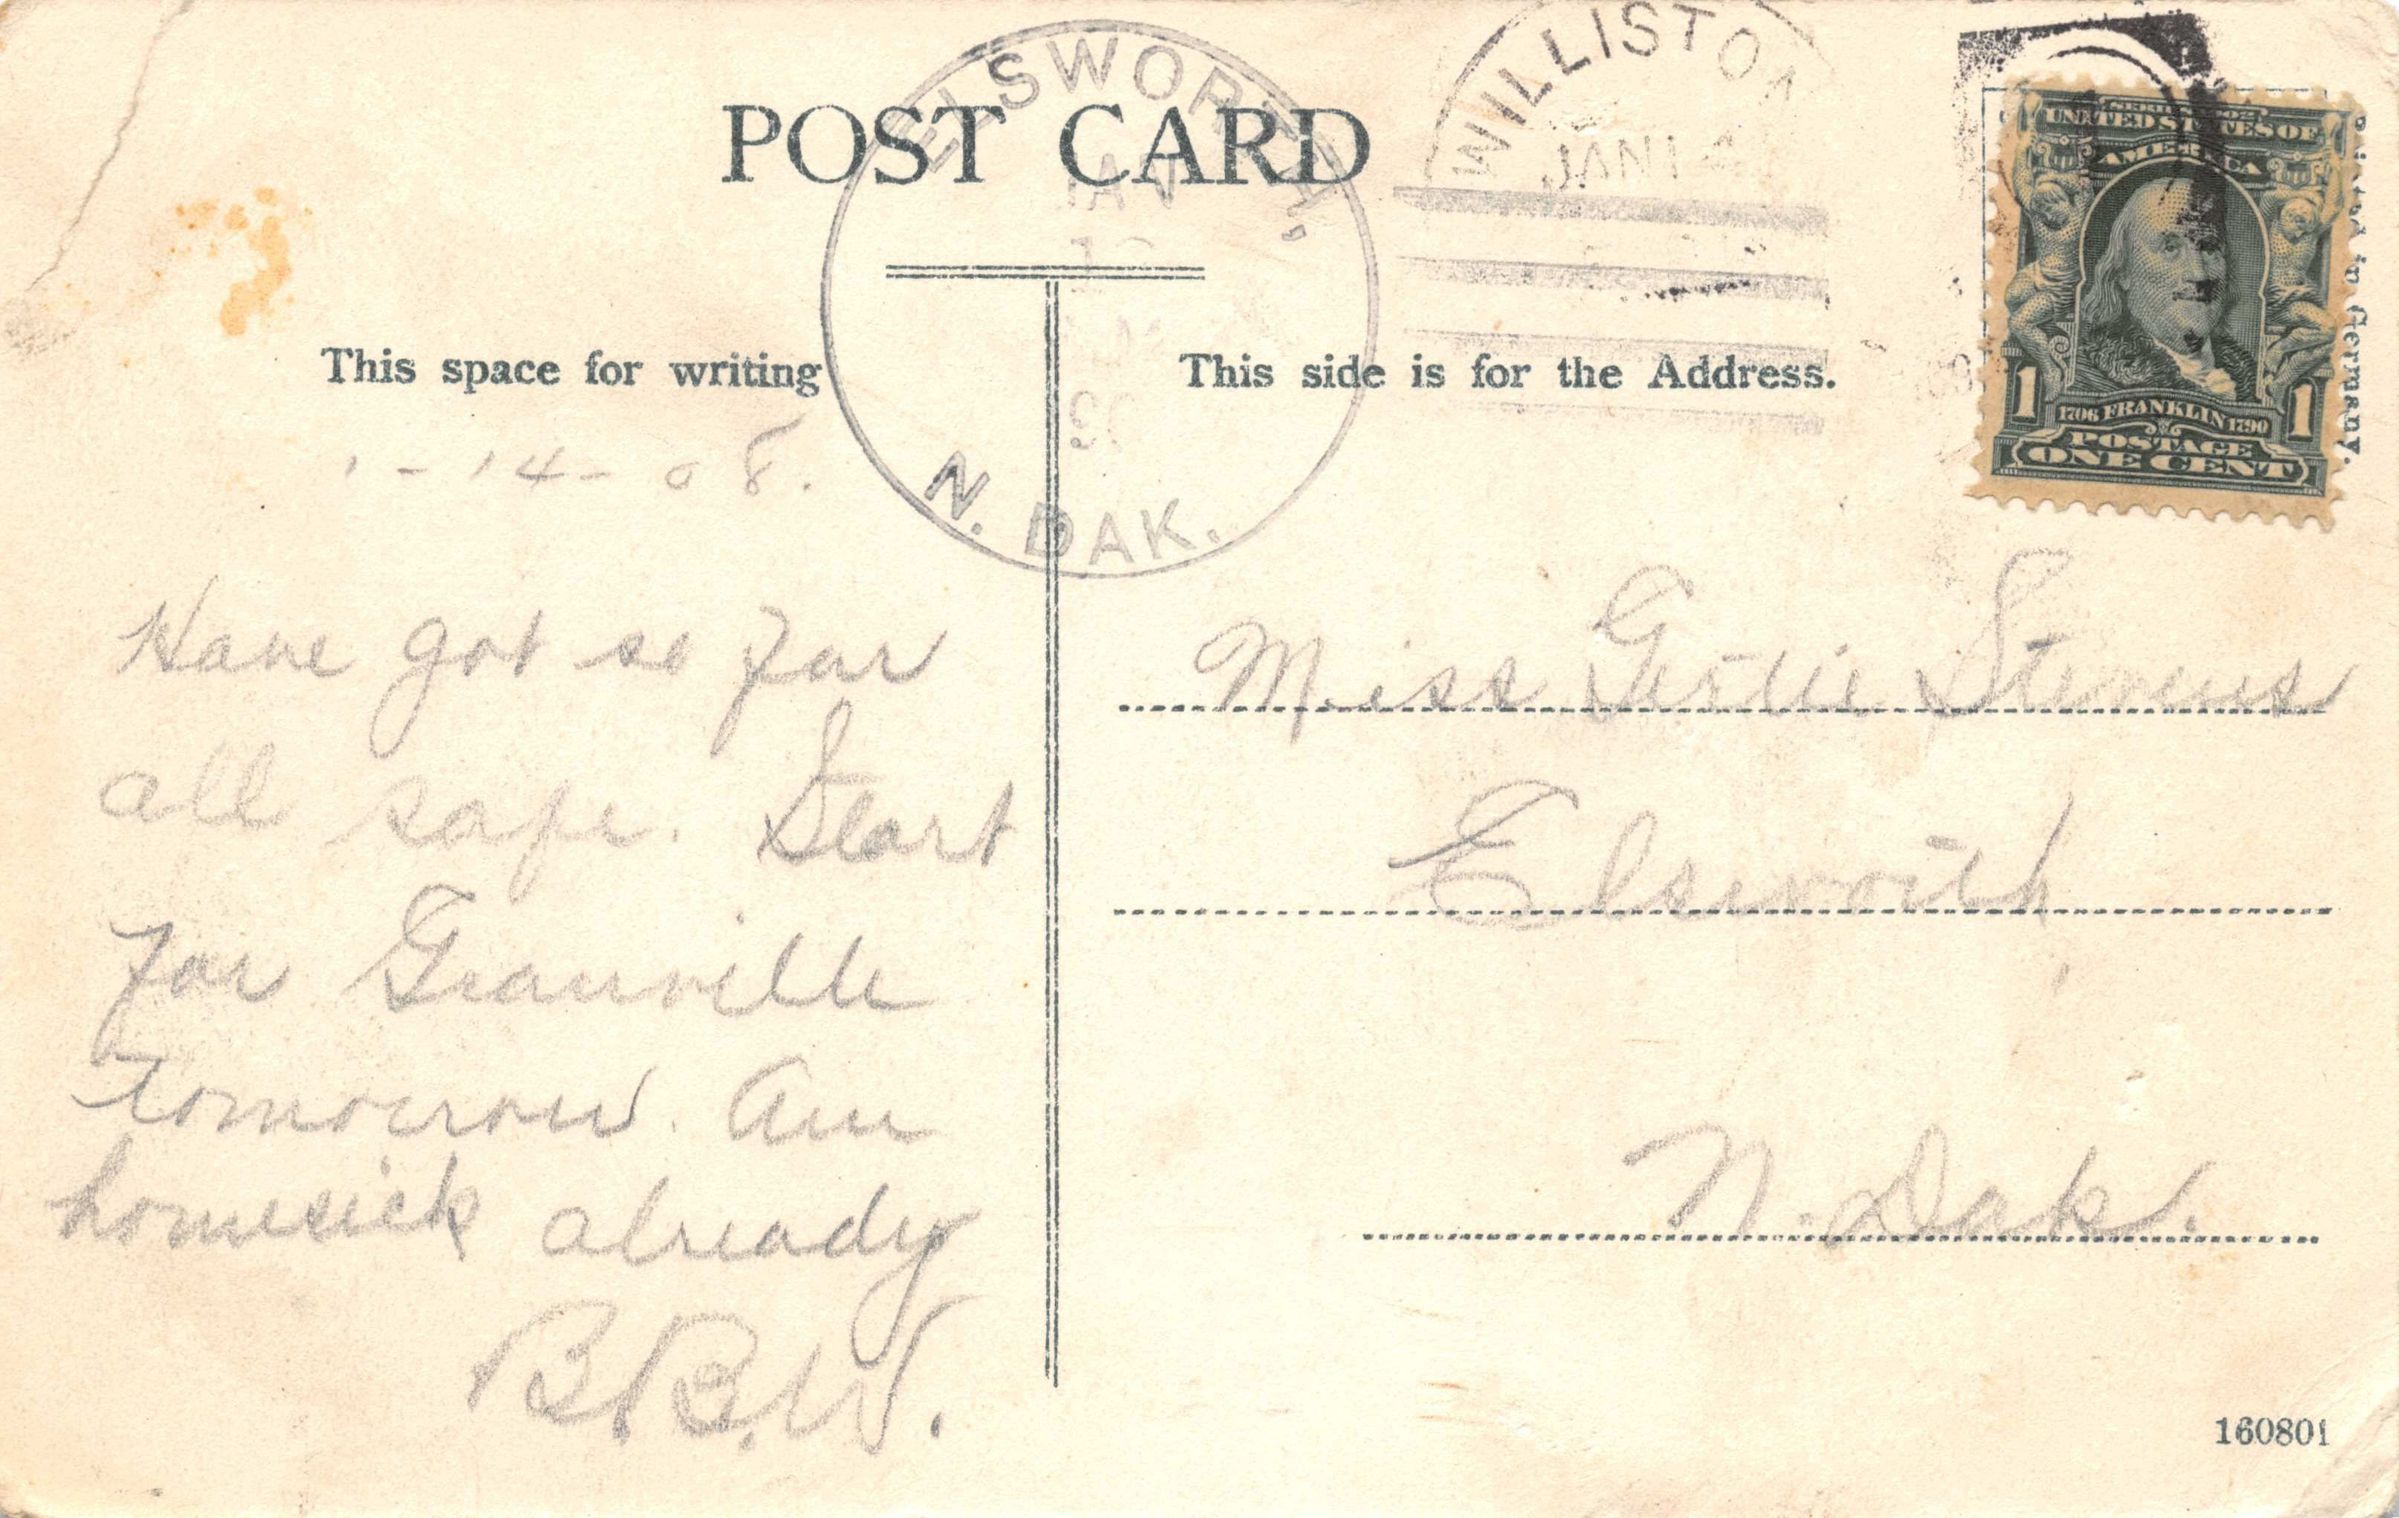 POST CARD
ELSWORTH,
JAN
N. DAK.
WILLISTON
JAN 14
SERIES 1902
UNITED STATES OF
AMERICA
1 1
1706 FRANKLIN 1790
POSTAGE
ONE CENT
Printed in Germany.
This space for writing
This side is for the Address.
1-14-08.
Have got so far
all safe. Start
for Granville
tomorrow. Am
homesick already
B.B.W.
Miss Gertie Stevens
Elsworth,
N. Dak.
160801